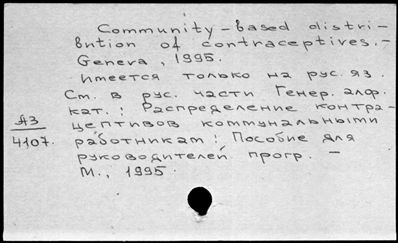 Community-based distri-
bution of contraceptives. -
Geneva, 1995.
Имеется только на рус. яз.
См. в рус. части Генер. алф.
кат.: Распределение контра-
АЗ
цептивов коммунальными
4107.
работникам: Пособие для
руководителей прогр. -
М., 1995.